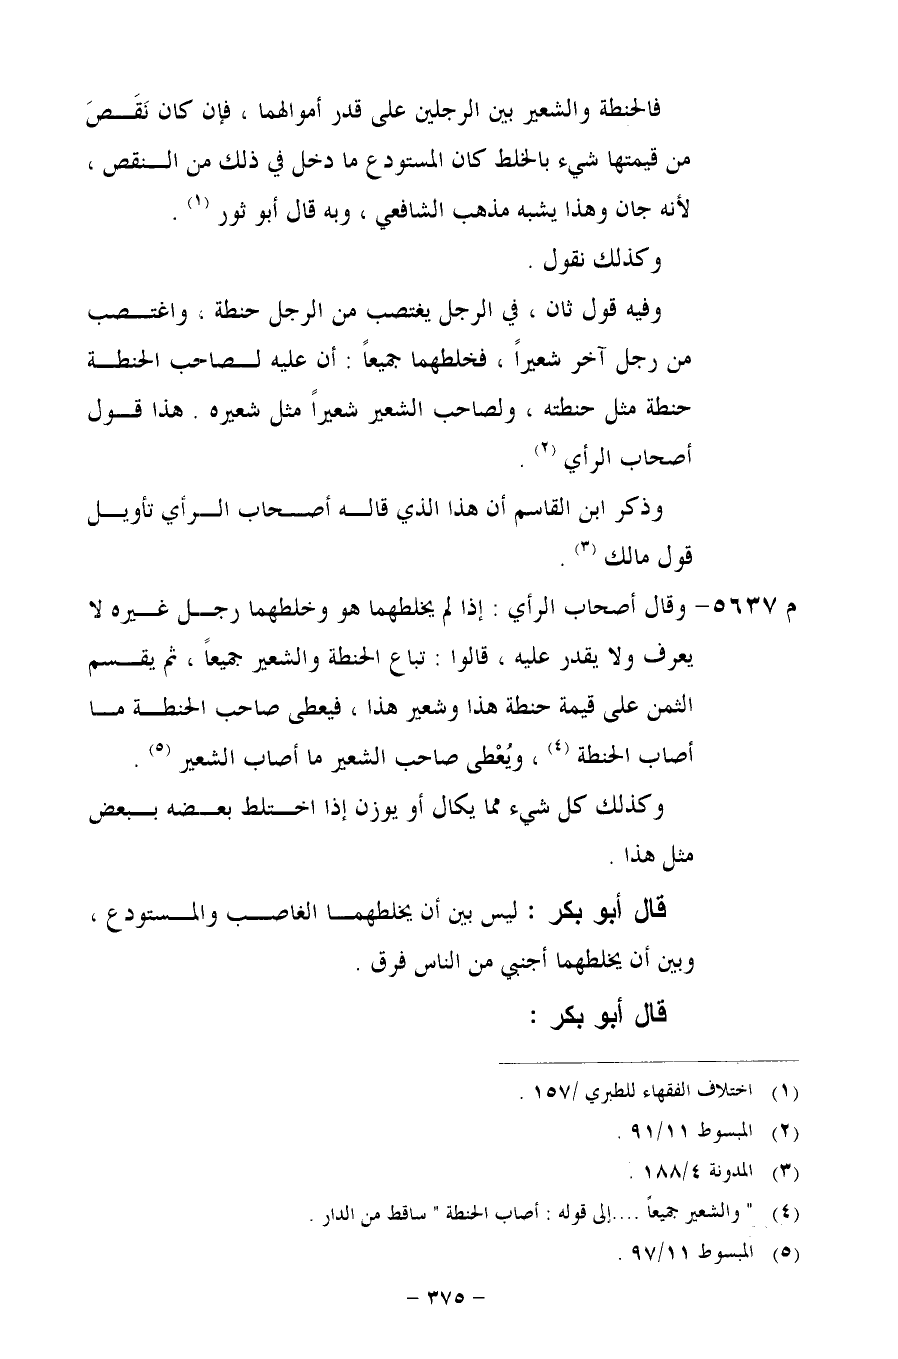 فالحنطة والشعير بين الرجلين على قدر أموالهما ، فإن كان نَقَـصَ
من قيمتها شيء بالخلط كان المستودع ما دخل في ذلك من النقص ،
لأنه جان وهذا يشبه مذهب الشافعي ، وبه قال أبو ثور (١) .
وكذلك نقول .
وفيه قول ثان ، في الرجل يغتصب من الرجل حنطة ، واغتصب
من رجل آخر شعيراً ، فخلطهما جميعاً : أن عليه لصاحب الحنطة
حنطة مثل حنطته ، ولصاحب الشعير شعيراً مثل شعيره . هذا قول
أصحاب الرأي (٢) .
وذكر ابن القاسم أن هذا الذي قاله أصحاب الرأي تأويل
قول مالك (٣) .
م ٥٦٣٧- وقال أصحاب الرأي : إذا لم يخلطهما هو وخلطهما رجل غيره لا
يعرف ولا يقدر عليه ، قالوا : تباع الحنطة والشعير جميعاً ، ثم يقسم
الثمن على قيمة حنطة هذا وشعير هذا ، فيعطى صاحب الحنطة ما
أصاب الحنطة (٤) ، ويُعْطى صاحب الشعير ما أصاب الشعير (٥) .
وكذلك كل شيء مما يكال أو يوزن إذا اختلط بعضه ببعض
مثل هذا .
قال أبو بكر : ليس بين أن يخلطهما الغاصب والمستودع ،
وبين أن يخلطهما أجنبي من الناس فرق .
قال أبو بكر :
(١) اختلاف الفقهاء للطبري /١٥٧ .
(٢) المبسوط ٩١/١١ .
(٣) المدونة ١٨٨/٤ .
(٤) " والشعير جميعاً ....إلى قوله : أصاب الحنطة " ساقط من الدار .
(٥) المبسوط ٩٧/١١ .
- ٣٧٥ -